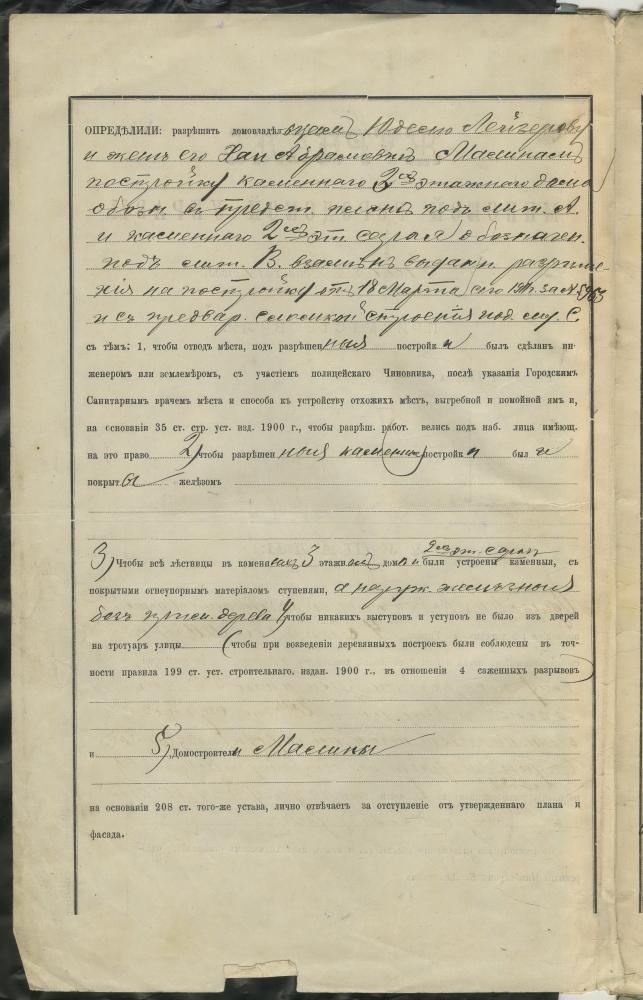 ОПРЕДѢЛИЛИ: разрѣшить домовладѣльцамъ Юделю Лейзерову
и женѣ его Абрамовнѣ Маслинамъ
постройку каменнаго 2хъ этажнаго дома
обозн. въ предст. планѣ подъ лит. А.
и каменнаго 2хъ эт. сарая обозначен.
подъ лит. В. взамѣнъ выдан. разрѣше-
нія на постройку отъ 18 Марта сего за № 5963
и съ предвар. сломкой строенія под. лит. С.
съ тѣмъ: 1, чтобы отводъ мѣста, подъ разрѣшенныя постройки былъ сдѣланъ ин-
женеромъ или землемѣромъ, съ участіемъ полицейскаго Чиновника, послѣ указанія Городскимъ
Санитарнымъ врачемъ мѣста и способа къ устройству отхожихъ мѣстъ, выгребной и помойной ямъ и,
на основаніи 35 ст. стр. уст. изд. 1900 г., чтобы разрѣш. работ. велись подъ наб. лица имѣющ.
на это право 2) чтобы разрѣшенныя каменныя постройки были
покрыты желѣзомъ
2хъ эт. сараѣ
3) Чтобы всѣ лѣстницы въ каменныхъ 3 этажн. дом и были устроены каменныя, съ
покрытыми огнеупорнымъ матеріаломъ ступенями, а наруж. желѣзныя
безъ прим. дерева 4) чтобы никакихъ выступовъ и уступовъ не было изъ дверей
на тротуаръ улицы (чтобы при возведеніи деревянныхъ построекъ были соблюдены въ точ-
ности правила 199 ст. уст. строительнаго, издан. 1900 г., въ отношеніи 4 саженныхъ разрывовъ)
и 5) Домостроители Маслины
на основаніи 208 ст. того-же устава, лично отвѣчаетъ за отступленіе отъ утвержденнаго плана и
фасада.